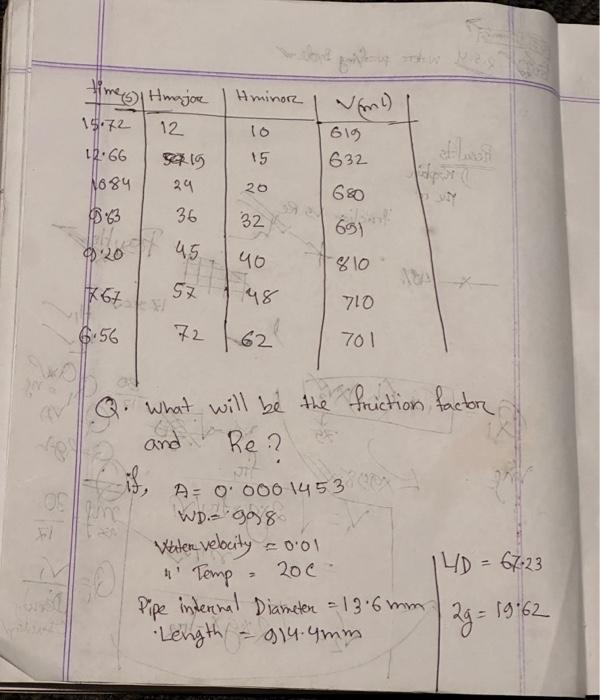 time(s) Hmajor Hminor V(ml)
15.72 12 10 619
12.66 19 15 632
1084 24 20 680
9.63 36 32 691
9.20 45 40 810
7.67 57 48 710
6.56 72 62 701
Q. what will be the friction factor
and Re?
if, A = 0.0001453
WD = 998
Water velocity = 0.01
" Temp = 20C
Pipe internal Diameter = 13.6 mm
Length = 914.4mm
L/D = 67.23
2g = 19.62